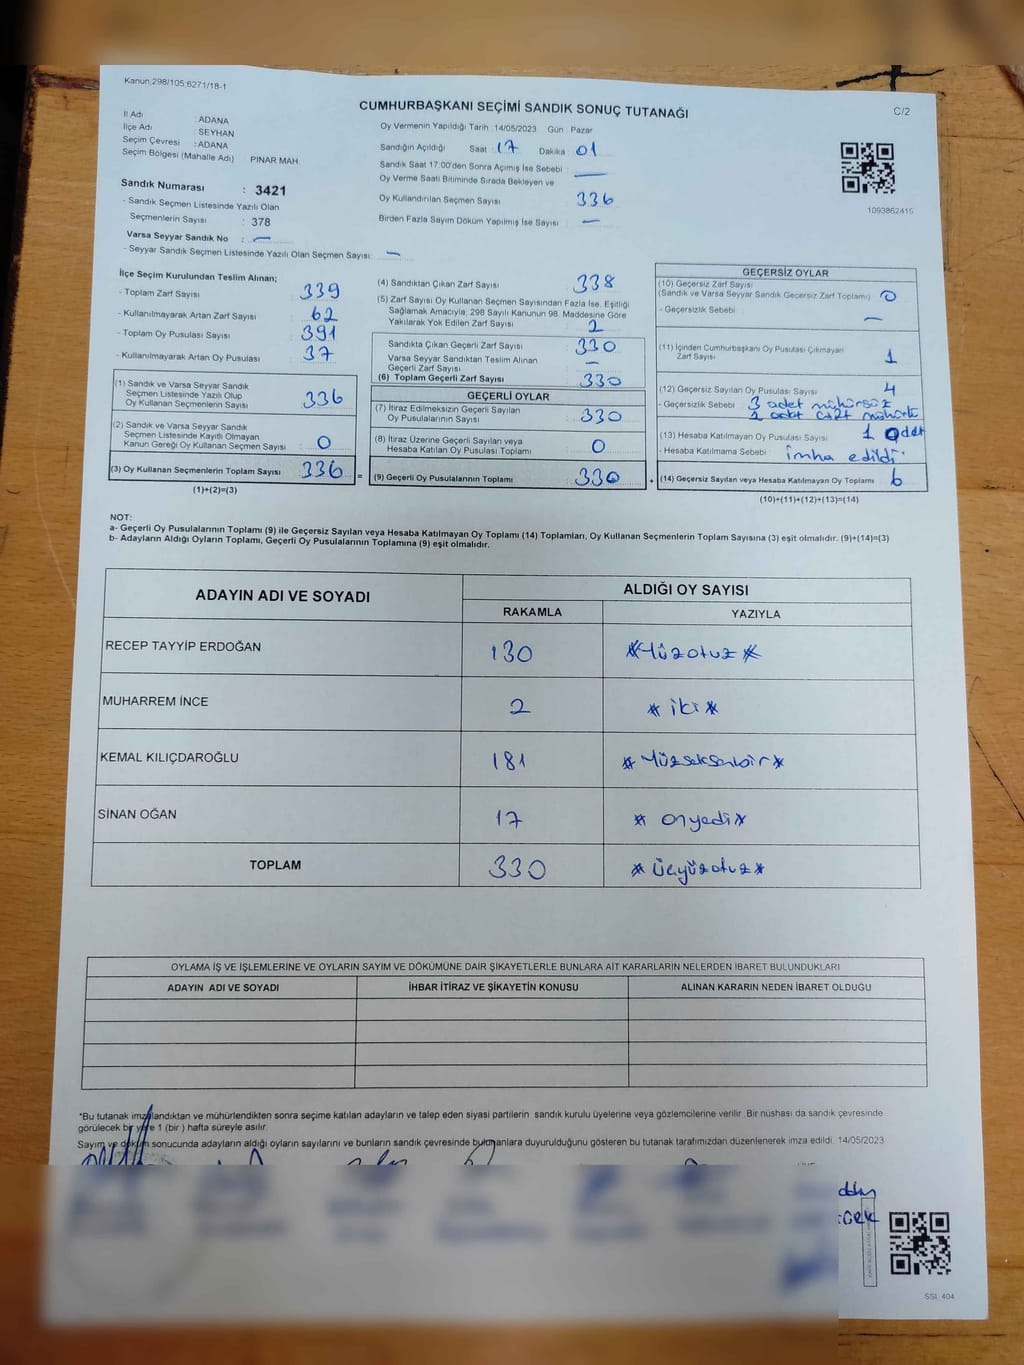 Kanun:298/105;6271/18-1
CUMHURBAŞKANI SEÇİMİ SANDIK SONUÇ TUTANAĞI
C/2
İl Adı : ADANA
İlçe Adı : SEYHAN
Seçim Çevresi : ADANA
Seçim Bölgesi (Mahalle Adı) PINAR MAH.
Sandık Numarası : 3421
- Sandık Seçmen Listesinde Yazılı Olan
Seçmenlerin Sayısı : 378
Varsa Seyyar Sandık No : —
- Seyyar Sandık Seçmen Listesinde Yazılı Olan Seçmen Sayısı: —
Oy Vermenin Yapıldığı Tarih :14/05/2023 Gün : Pazar
Sandığın Açıldığı Saat : 17 Dakika : 01
Sandık Saat 17:00'den Sonra Açılmış İse Sebebi : —
Oy Verme Saati Bitiminde Sırada Bekleyen ve
Oy Kullandırılan Seçmen Sayısı 336
Birden Fazla Sayım Döküm Yapılmış İse Sayısı —
1093862415
İlçe Seçim Kurulundan Teslim Alınan;
- Toplam Zarf Sayısı 339
- Kullanılmayarak Artan Zarf Sayısı 62
- Toplam Oy Pusulası Sayısı 391
- Kullanılmayarak Artan Oy Pusulası 37
(1) Sandık ve Varsa Seyyar Sandık
Seçmen Listesinde Yazılı Olup
Oy Kullanan Seçmenlerin Sayısı 336
(2) Sandık ve Varsa Seyyar Sandık
Seçmen Listesinde Kayıtlı Olmayan
Kanun Gereği Oy Kullanan Seçmen Sayısı 0
(3) Oy Kullanan Seçmenlerin Toplam Sayısı 336 =
(1)+(2)=(3)
(4) Sandıktan Çıkan Zarf Sayısı 338
(5) Zarf Sayısı Oy Kullanan Seçmen Sayısından Fazla İse, Eşitliği
Sağlamak Amacıyla, 298 Sayılı Kanunun 98. Maddesine Göre
Yakılarak Yok Edilen Zarf Sayısı 2
Sandıkta Çıkan Geçerli Zarf Sayısı 330
Varsa Seyyar Sandıktan Teslim Alınan
Geçerli Zarf Sayısı —
(6) Toplam Geçerli Zarf Sayısı 330
GEÇERLİ OYLAR
(7) İtiraz Edilmeksizin Geçerli Sayılan
Oy Pusulalarının Sayısı 330
(8) İtiraz Üzerine Geçerli Sayılan veya
Hesaba Katılan Oy Pusulası Toplamı 0
(9) Geçerli Oy Pusulalarının Toplamı 330 +
GEÇERSİZ OYLAR
(10) Geçersiz Zarf Sayısı
(Sandık ve Varsa Seyyar Sandık Geçersiz Zarf Toplamı) 0
- Geçersizlik Sebebi —
(11) İçinden Cumhurbaşkanı Oy Pusulası Çıkmayan
Zarf Sayısı 1
(12) Geçersiz Sayılan Oy Pusulası Sayısı 4
- Geçersizlik Sebebi 3 adet mühürsüz
1 adet çift mühürlü
(13) Hesaba Katılmayan Oy Pusulası Sayısı 1 adet
- Hesaba Katılmama Sebebi imha edildi.
(14) Geçersiz Sayılan veya Hesaba Katılmayan Oy Toplamı 6
(10)+(11)+(12)+(13)=(14)
NOT:
a- Geçerli Oy Pusulalarının Toplamı (9) ile Geçersiz Sayılan veya Hesaba Katılmayan Oy Toplamı (14) Toplamları, Oy Kullanan Seçmenlerin Toplam Sayısına (3) eşit olmalıdır. (9)+(14)=(3)
b- Adayların Aldığı Oyların Toplamı, Geçerli Oy Pusulalarının Toplamına (9) eşit olmalıdır.
ADAYIN ADI VE SOYADI ALDIĞI OY SAYISI
RAKAMLA YAZIYLA
RECEP TAYYİP ERDOĞAN 130 *Yüzotuz*
MUHARREM İNCE 2 *iki*
KEMAL KILIÇDAROĞLU 181 *Yüzseksenbir*
SİNAN OĞAN 17 *onyedi*
TOPLAM 330 *üçyüzotuz*
OYLAMA İŞ VE İŞLEMLERİNE VE OYLARIN SAYIM VE DÖKÜMÜNE DAİR ŞİKAYETLERLE BUNLARA AİT KARARLARIN NELERDEN İBARET BULUNDUKLARI
ADAYIN ADI VE SOYADI İHBAR İTİRAZ VE ŞİKAYETİN KONUSU ALINAN KARARIN NEDEN İBARET OLDUĞU
*Bu tutanak imzalandıktan ve mühürlendikten sonra seçime katılan adayların ve talep eden siyasi partilerin sandık kurulu üyelerine veya gözlemcilerine verilir. Bir nüshası da sandık çevresinde
görülecek bir yere 1 (bir ) hafta süreyle asılır.
Sayım ve döküm sonucunda adayların aldığı oyların sayılarını ve bunların sandık çevresinde bulunanlara duyurulduğunu gösteren bu tutanak tarafımızdan düzenlenerek imza edildi. 14/05/2023
SSI_404